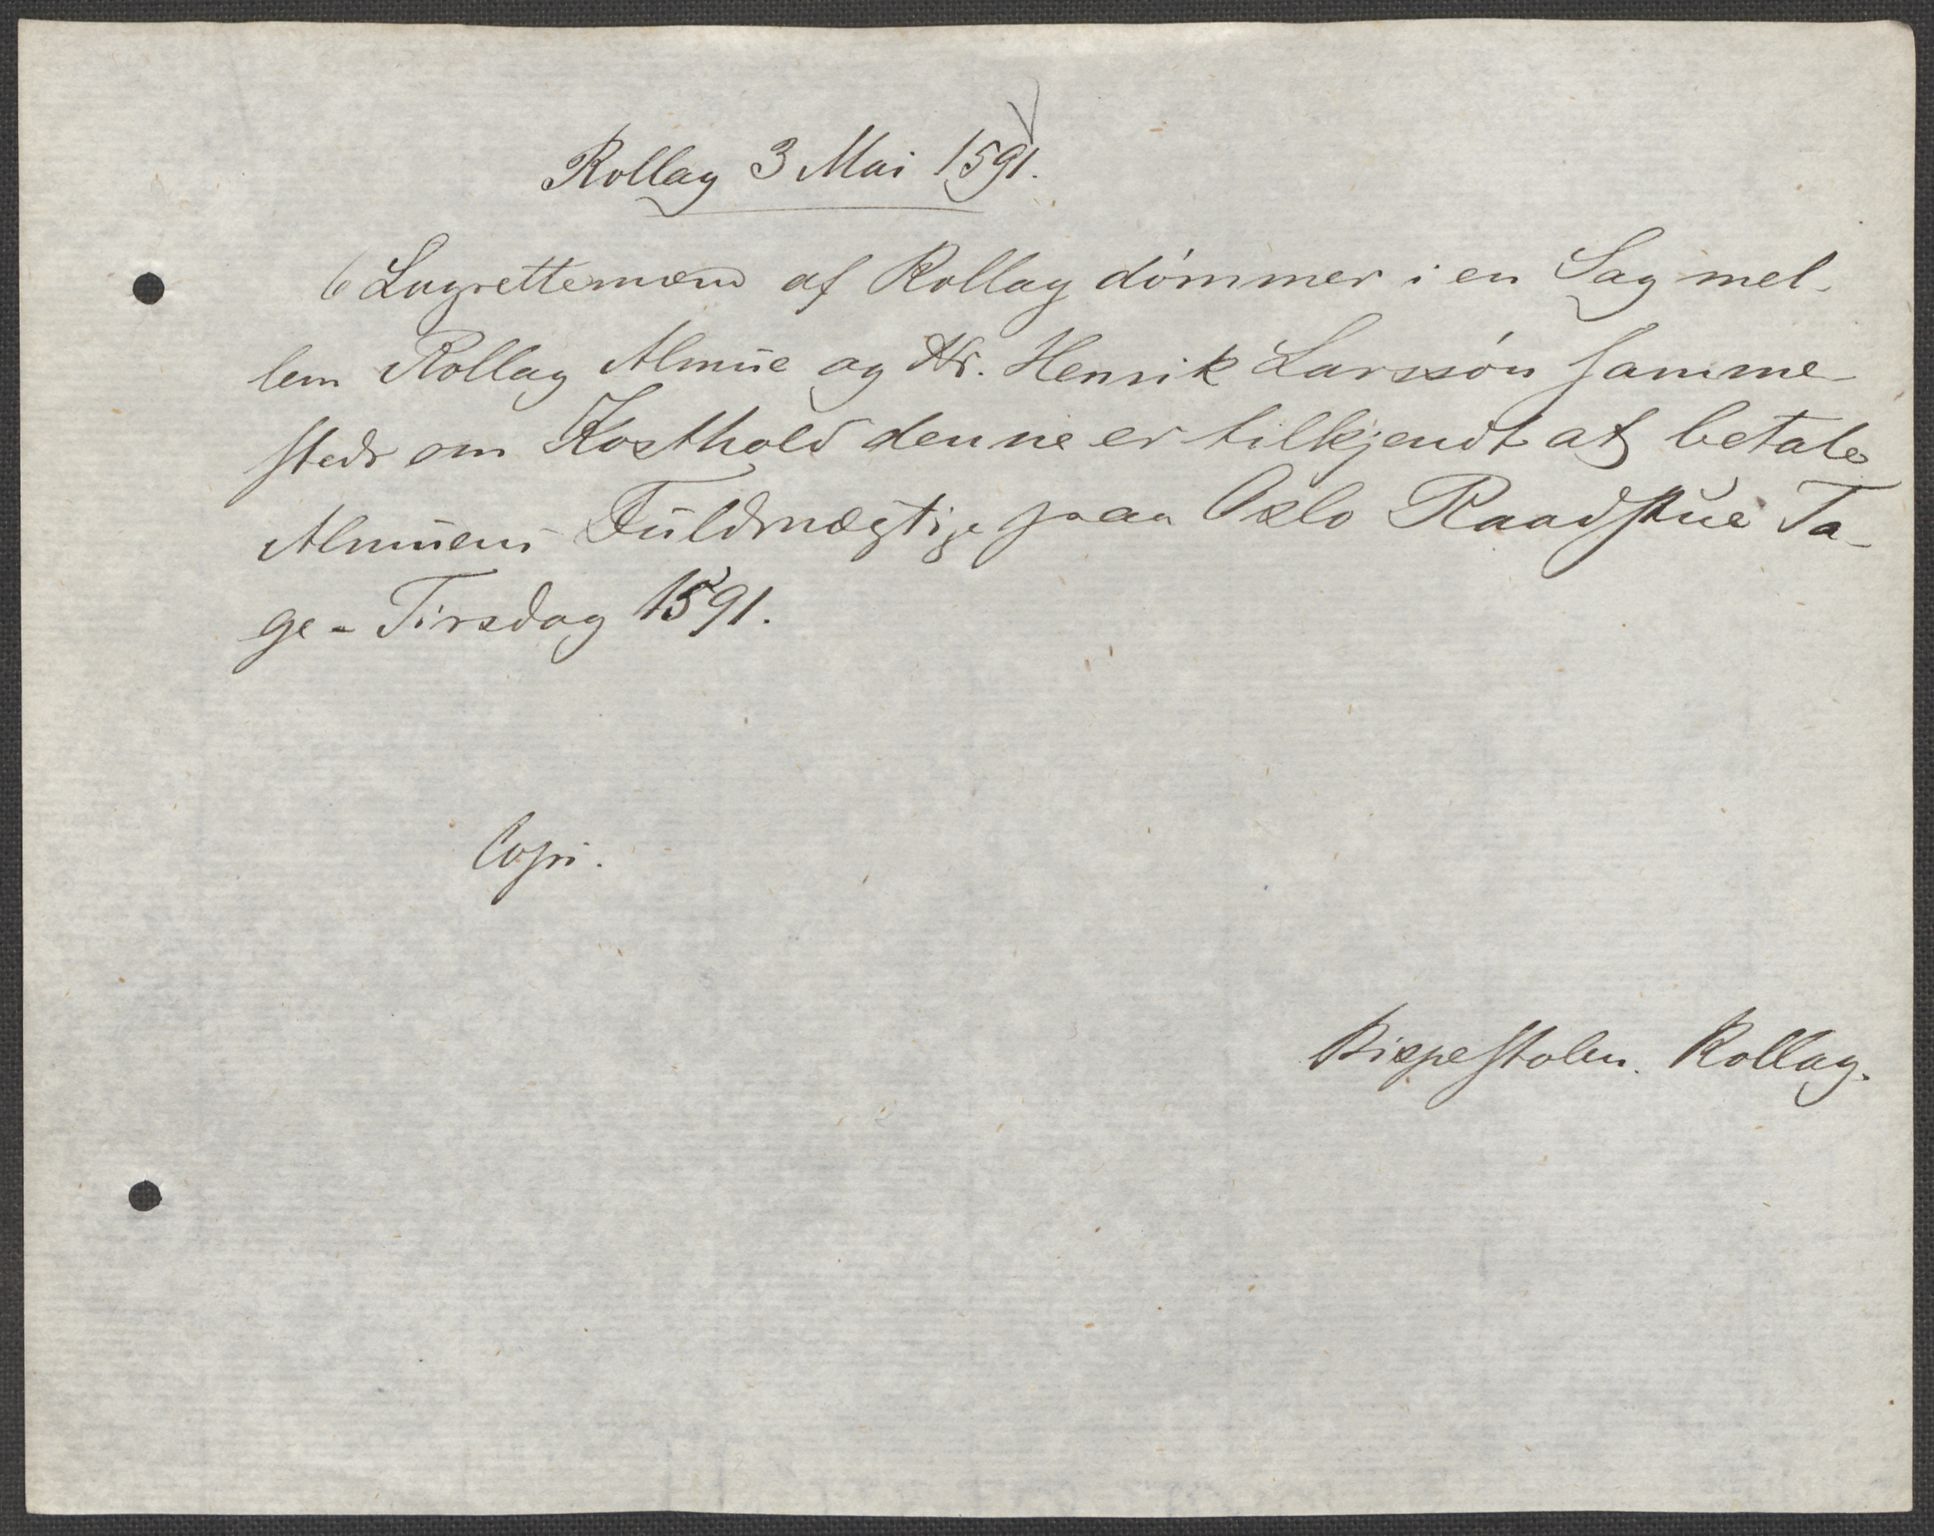 Rollag 3 Mai 1591.
6 Lagrettemænd af Rollag dømmer i en Sag mel-
lem Rollag Almue og Hr. Henrik Larssøn samme-
steds om Kosthold denne er tilkjendt at betale
Almuens Fuldmægtige paa Oslo Raadstue Ta-
ge-Tirsdag 1591.
Copi.
Bispestolen. Rollag.